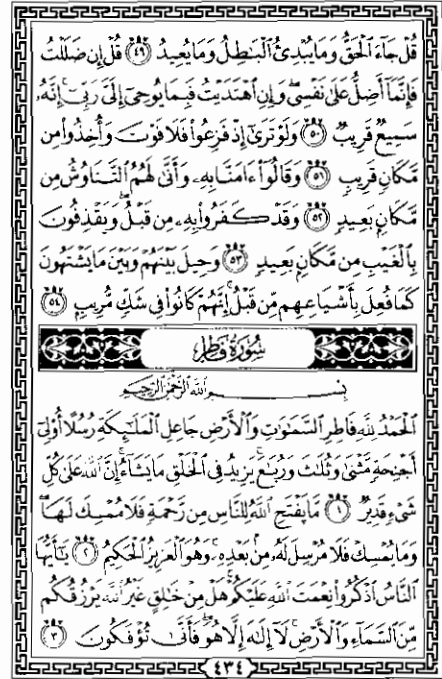 قُلْ جَآءَ ٱلْحَقُّ وَمَا يُبْدِئُ ٱلْبَـٰطِلُ وَمَا يُعِيدُ ٤٩ قُلْ إِن ضَلَلْتُ
فَإِنَّمَآ أَضِلُّ عَلَىٰ نَفْسِى ۖ وَإِنِ ٱهْتَدَيْتُ فَبِمَا يُوحِىٓ إِلَىَّ رَبِّىٓ ۚ إِنَّهُۥ
سَمِيعٌ قَرِيبٌ ٥٠ وَلَوْ تَرَىٰٓ إِذْ فَزِعُوا۟ فَلَا فَوْتَ وَأُخِذُوا۟ مِن
مَّكَانٍ قَرِيبٍ ٥١ وَقَالُوٓا۟ ءَامَنَّا بِهِۦ وَأَنَّىٰ لَهُمُ ٱلتَّنَاوُشُ مِن
مَّكَانٍۭ بَعِيدٍ ٥٢ وَقَدْ كَفَرُوا۟ بِهِۦ مِن قَبْلُ ۖ وَيَقْذِفُونَ
بِٱلْغَيْبِ مِن مَّكَانٍۭ بَعِيدٍ ٥٣ وَحِيلَ بَيْنَهُمْ وَبَيْنَ مَا يَشْتَهُونَ
كَمَا فُعِلَ بِأَشْيَاعِهِم مِّن قَبْلُ ۚ إِنَّهُمْ كَانُوا۟ فِى شَكٍّ مُّرِيبٍۭ ٥٤
سُورَةُ فَاطِرٍ
بِسْمِ ٱللَّهِ ٱلرَّحْمَـٰنِ ٱلرَّحِيمِ
ٱلْحَمْدُ لِلَّهِ فَاطِرِ ٱلسَّمَـٰوَٰتِ وَٱلْأَرْضِ جَاعِلِ ٱلْمَلَـٰٓئِكَةِ رُسُلًا أُو۟لِىٓ
أَجْنِحَةٍ مَّثْنَىٰ وَثُلَـٰثَ وَرُبَـٰعَ ۚ يَزِيدُ فِى ٱلْخَلْقِ مَا يَشَآءُ ۚ إِنَّ ٱللَّهَ عَلَىٰ كُلِّ
شَىْءٍ قَدِيرٌ ١ مَّا يَفْتَحِ ٱللَّهُ لِلنَّاسِ مِن رَّحْمَةٍ فَلَا مُمْسِكَ لَهَا ۖ
وَمَا يُمْسِكْ فَلَا مُرْسِلَ لَهُۥ مِنۢ بَعْدِهِۦ ۚ وَهُوَ ٱلْعَزِيزُ ٱلْحَكِيمُ ٢ يَـٰٓأَيُّهَا
ٱلنَّاسُ ٱذْكُرُوا۟ نِعْمَتَ ٱللَّهِ عَلَيْكُمْ ۚ هَلْ مِنْ خَـٰلِقٍ غَيْرُ ٱللَّهِ يَرْزُقُكُم
مِّنَ ٱلسَّمَآءِ وَٱلْأَرْضِ ۚ لَآ إِلَـٰهَ إِلَّا هُوَ ۖ فَأَنَّىٰ تُؤْفَكُونَ ٣
٤٣٤